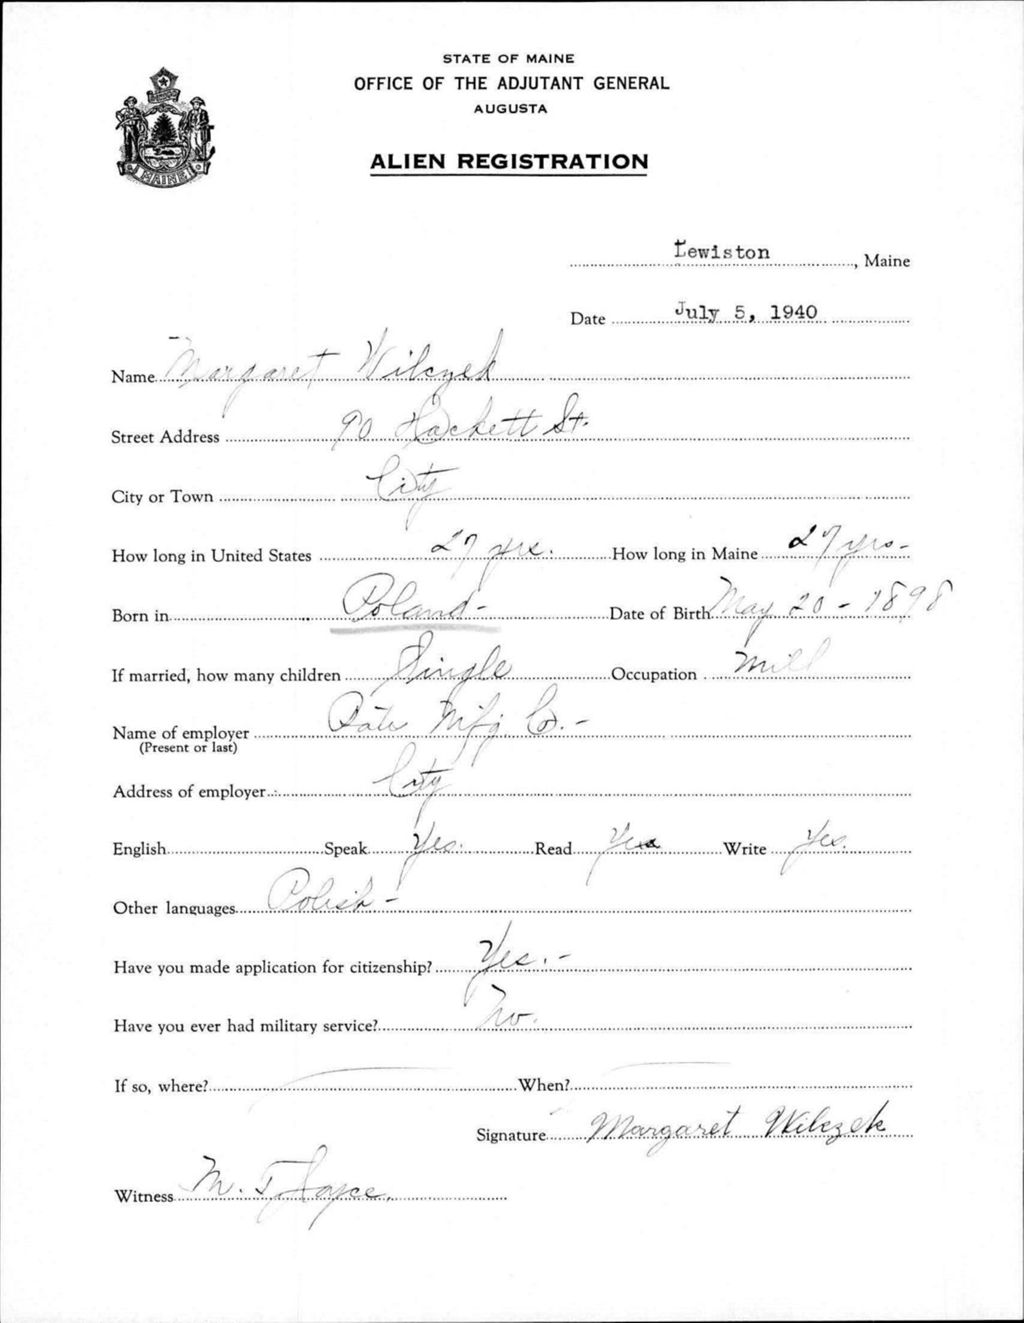 STATE OF MAINE
OFFICE OF THE ADJUTANT GENERAL
AUGUSTA
ALIEN REGISTRATION
MAINE
Lewiston, Maine
Date July 5, 1940
Name Margaret Wilczek
Street Address 90 Hackett St.
City or Town City
How long in United States 27 yrs. How long in Maine 27 yrs-
Born in Poland- Date of Birth May 20 - 1898
If married, how many children Single Occupation Mill
Name of employer Bates Mfg. Co. -
(Present or last)
Address of employer City
English Speak Yes. Read Yes Write Yes.
Other languages Polish -
Have you made application for citizenship? Yes. -
Have you ever had military service? No.
If so, where? When?
Signature Margaret Wilczek
Witness M. T. Joyce.